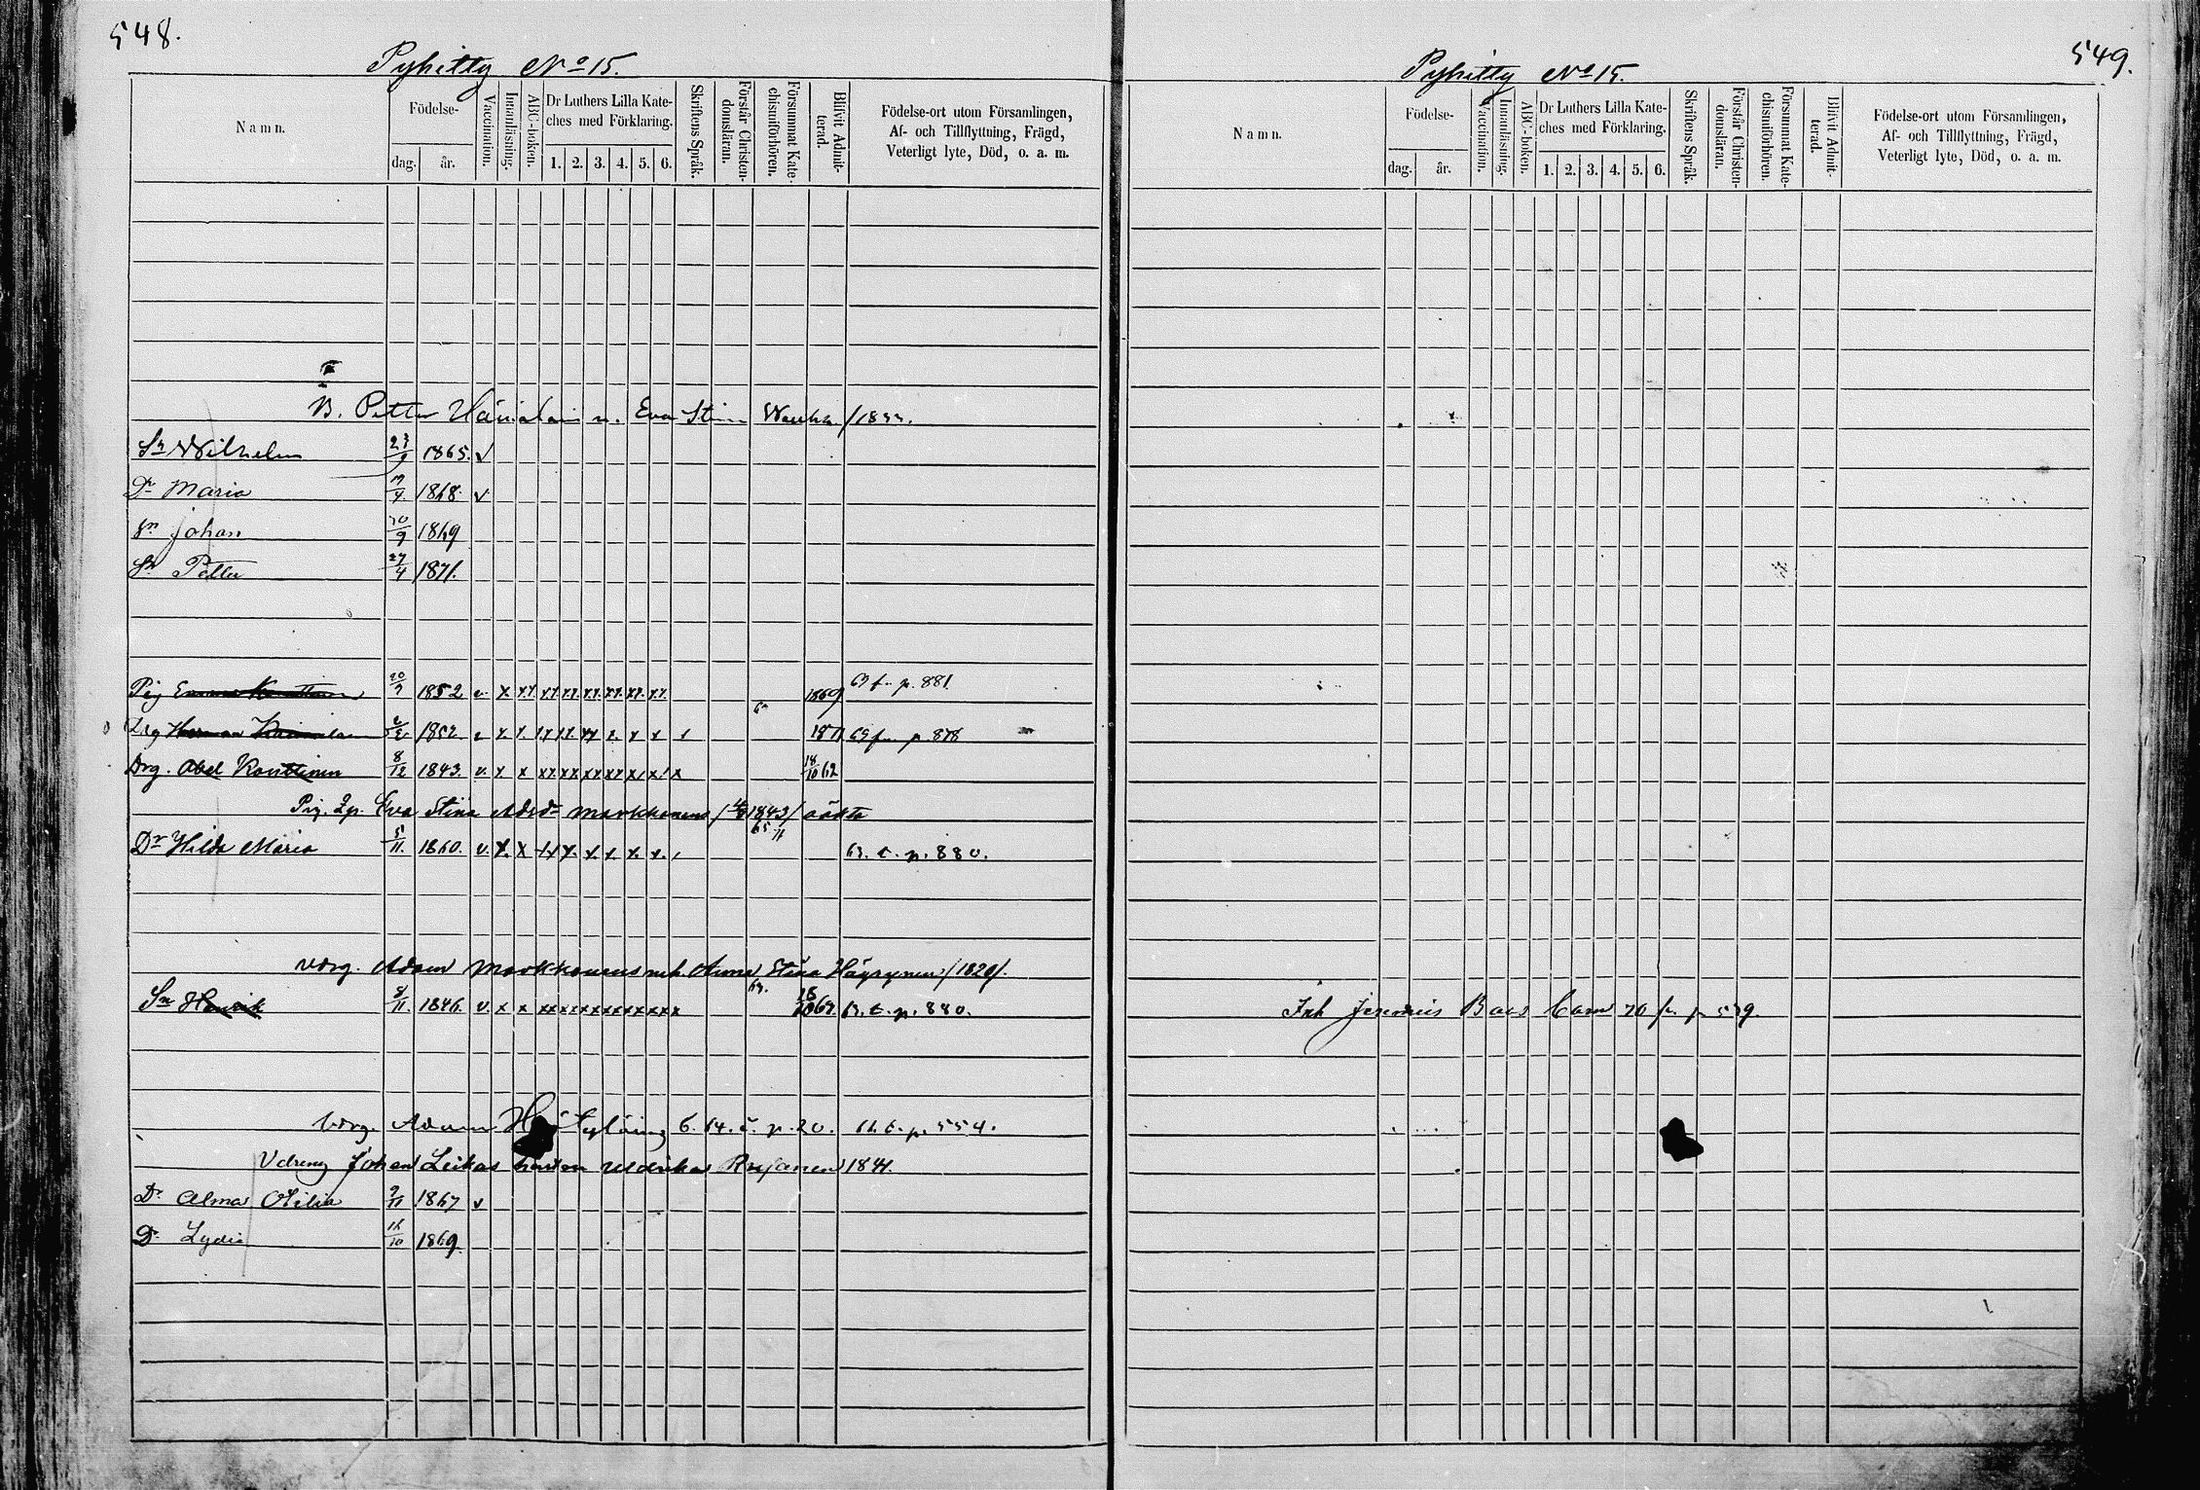 548.
Pyhitty No 15.
Namn.
Födelse-
dag. år.
Vaccination.
Innanläsning.
ABC-boken.
Dr Luthers Lilla Kate-
ches med Förklaring.
1. 2. 3. 4. 5. 6.
Skriftens Språk.
Förstår Christen-
domsläran.
Försummat Kate-
chismiförhören.
Blifvit Admit-
terad.
Födelse-ort utom Församlingen,
Af- och Tillflyttning, Frägd,
Veterligt lyte, Död, o. a. m.
B. Petter Eva Stina /1833.
Sn Wilhelm 23/9 1865. v
Dr Maria /4 1868. v
Sn Johan 30/9 1869
Sn Petter 27/4 1871.
Pig Emma Konttinen 20/9 1852 v. x x.x. xx xx. xx. xx. xx. xx. 1869 69 fr. p. 881
Drg Herman 1852 1871 69 fr. p. 878
Drg. Abel Konttinen 8/12 1843. v. x x xx xx xx xx x/ x/ x 18/10 62
Pig. Eva Stina Adsdr Markkanens 1843/
Dr Hilda Maria 5/11. 1860. v. x. x x. x. x. x. x. 63. t. p. 880.
vdrg. Adam Markkanens enk. Anna Stina Häyrynen /1820/.
Sn Henrik 8/11. 1846. v. x x xx xx xx xx xx xx x 63. t. p. 880.
Vdrg. Adam 6. 64. p. 20. t. p. 554.
Vdreng Johan Leikas hustru Uldrika 1841.
Dr Alma Otilia 9/11 1867 v
Dr Lydia 16/10 1869.
549.
Pyhitty No 15.
Namn.
Födelse-
dag. år.
Vaccination.
Innanläsning.
ABC-boken.
Dr Luthers Lilla Kate-
ches med Förklaring.
1. 2. 3. 4. 5. 6.
Skriftens Språk.
Förstår Christen-
domsläran.
Försummat Kate-
chismiförhören.
Blifvit Admit-
terad.
Födelse-ort utom Församlingen,
Af- och Tillflyttning, Frägd,
Veterligt lyte, Död, o. a. m.
Inh Jeremias Barn 70 fr. p. 539.